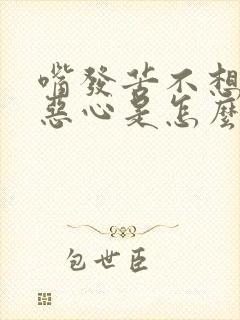 嘴發苦不想
惡心是怎麼
包世臣